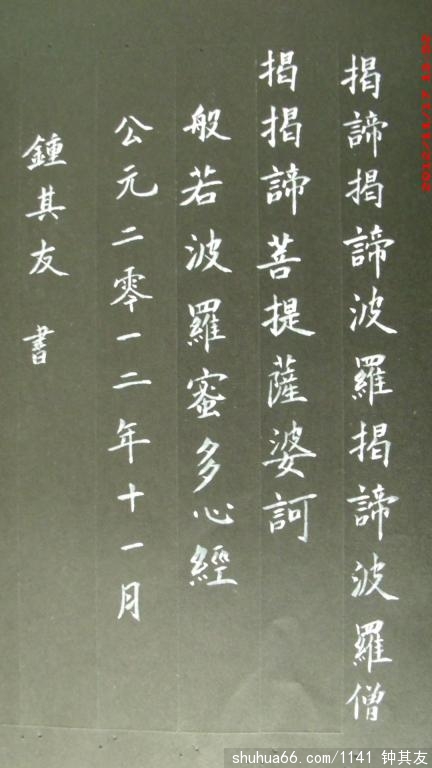 揭諦揭諦波羅揭諦波羅僧
揭揭諦菩提薩婆訶
般若波羅蜜多心經
公元二零一二年十一月
鍾其友 書
shuhua66.com/1141 钟其友